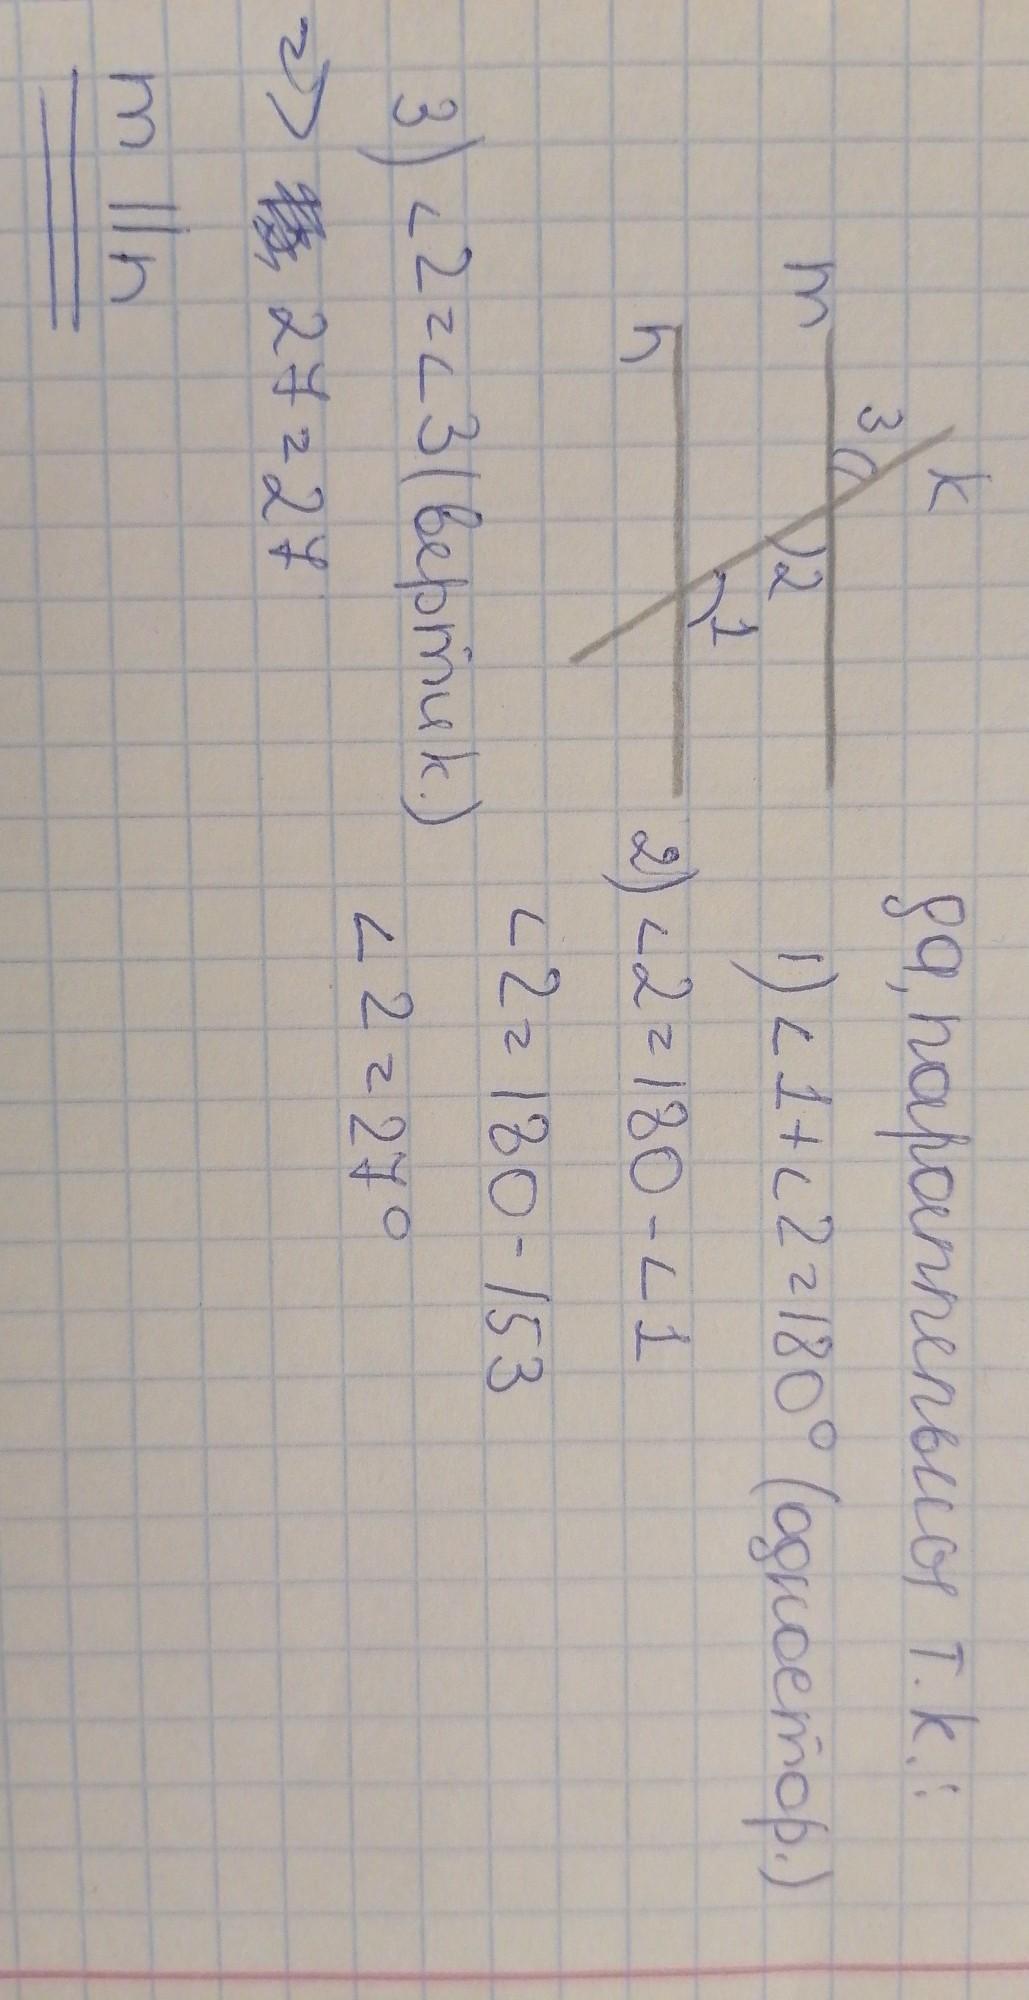 да, параллельны т.к.:
k
3
m
2
1
n
1) ∠1+∠2=180° (одностор.)
2) ∠2=180-∠1
∠2=180-153
∠2=27°
3) ∠2=∠3 (вертик.)
=> 27=27
m || n